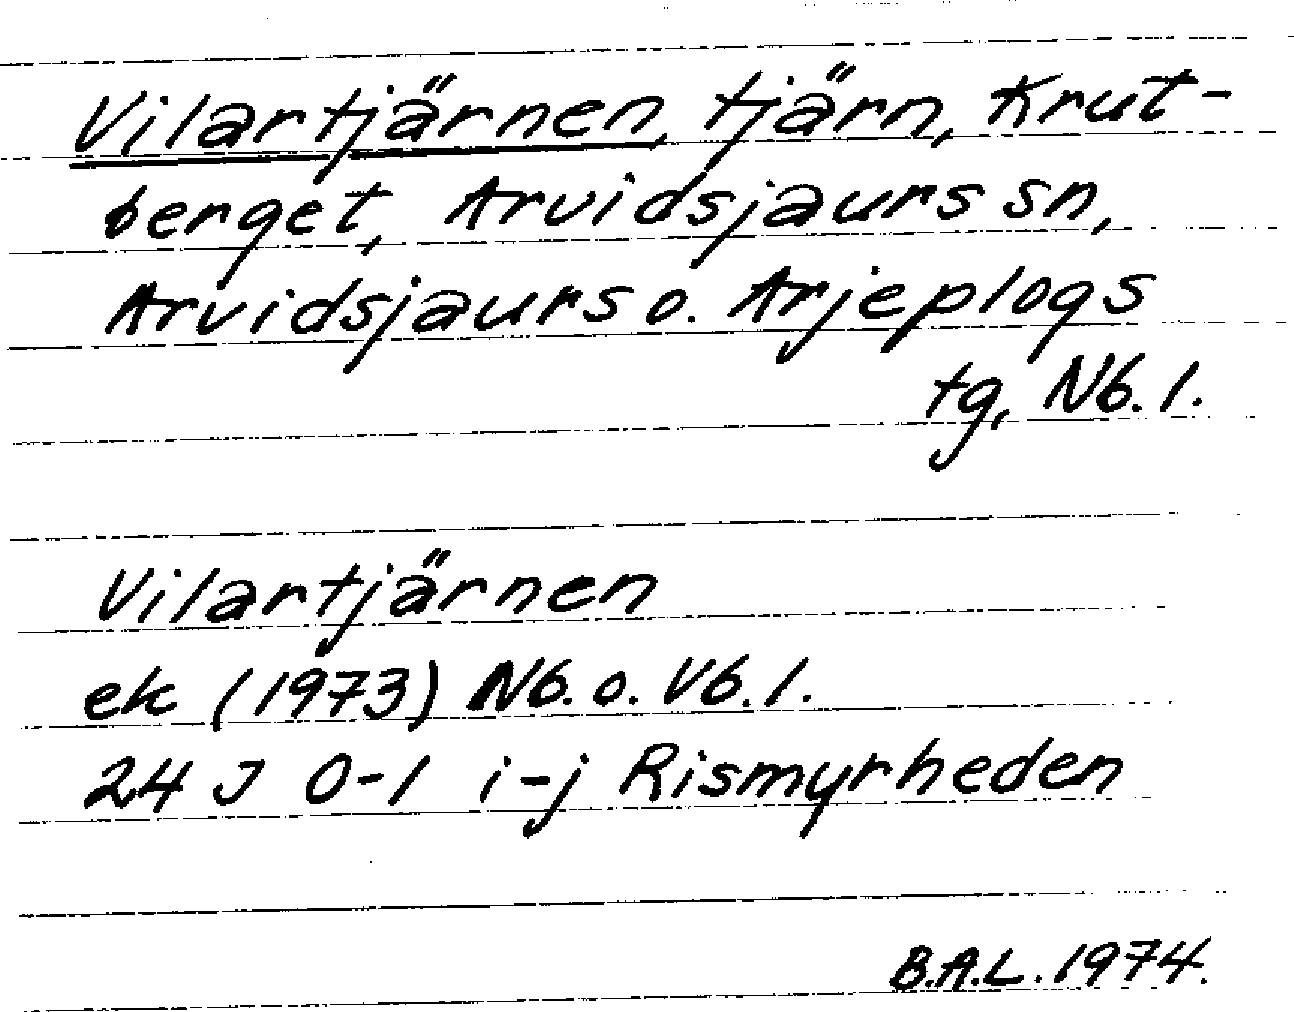 Vilartjärnen, tjärn, Krut-
berget, Arvidsjaurs sn,
Arvidsjaurs o. Arjeplogs
tg, Nb. l.
Vilartjärnen
ek (1973) Nb. o. Vb. l.
24 J 0-1 i-j Rismyrheden
B.A.L. 1974.